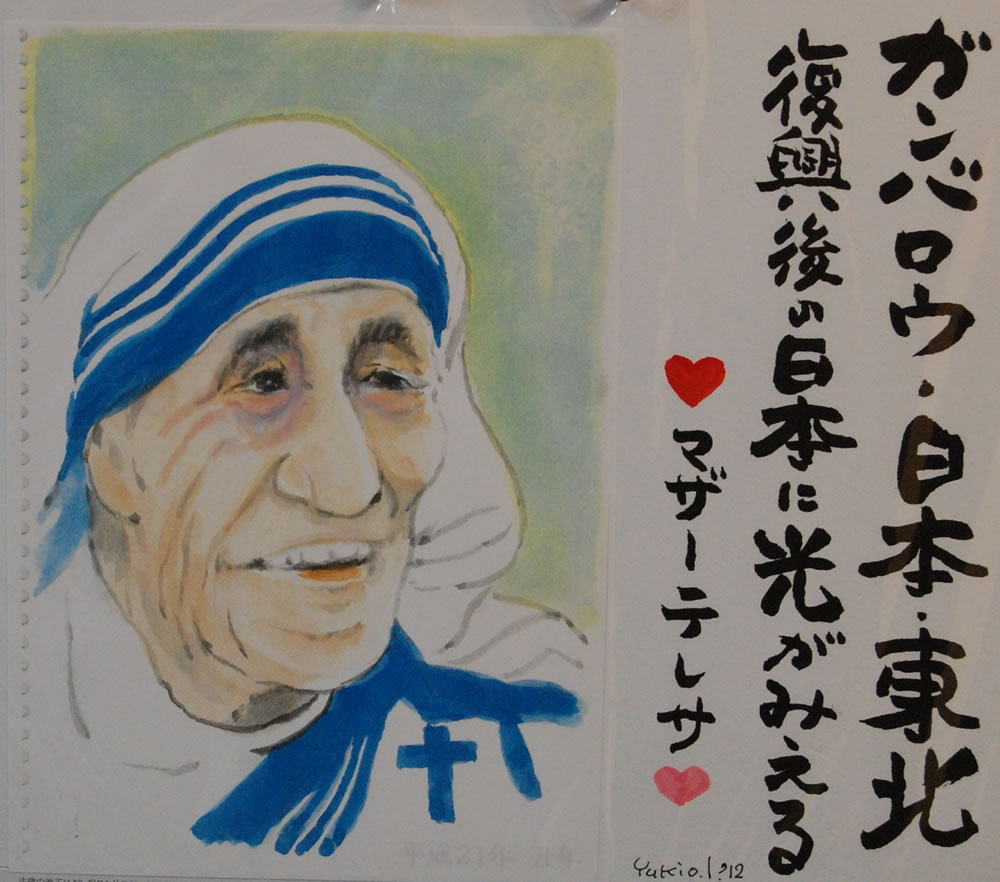 ガンバロウ・日本・東北
復興後の日本に光がみえる
マザーテレサ
Yukio.I ?12
平成21年